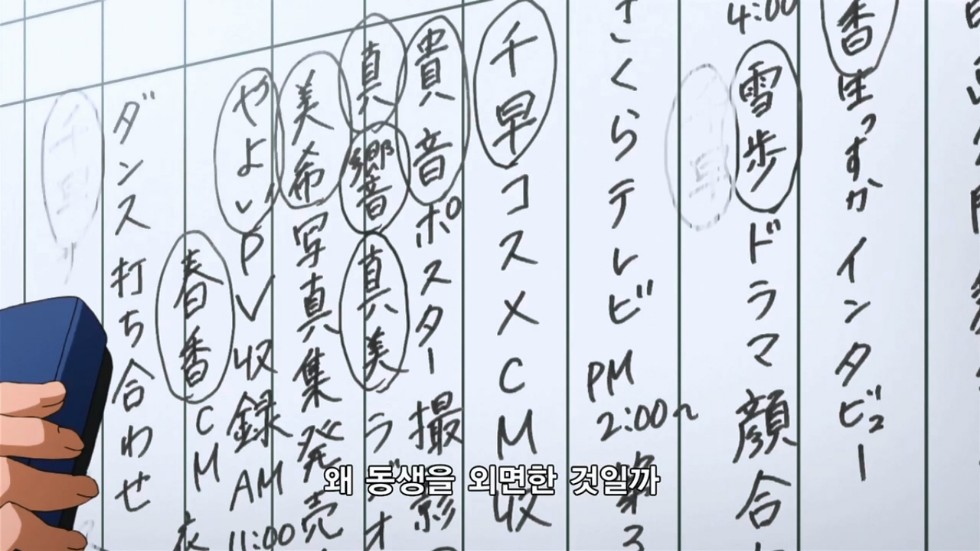 香 生っすか インタビュー
4:00
雪歩 ドラマ顔合
さくらテレビ PM 2:00~ 第3
千早 コスメCM収
貴音 ポスター撮影
真 響 真美 ラジオ
美希 写真集発売
やよい PV収録 AM 11:00
春香 CM 衣
ダンス打ち合わせ
千早
왜 동생을 외면한 것일까